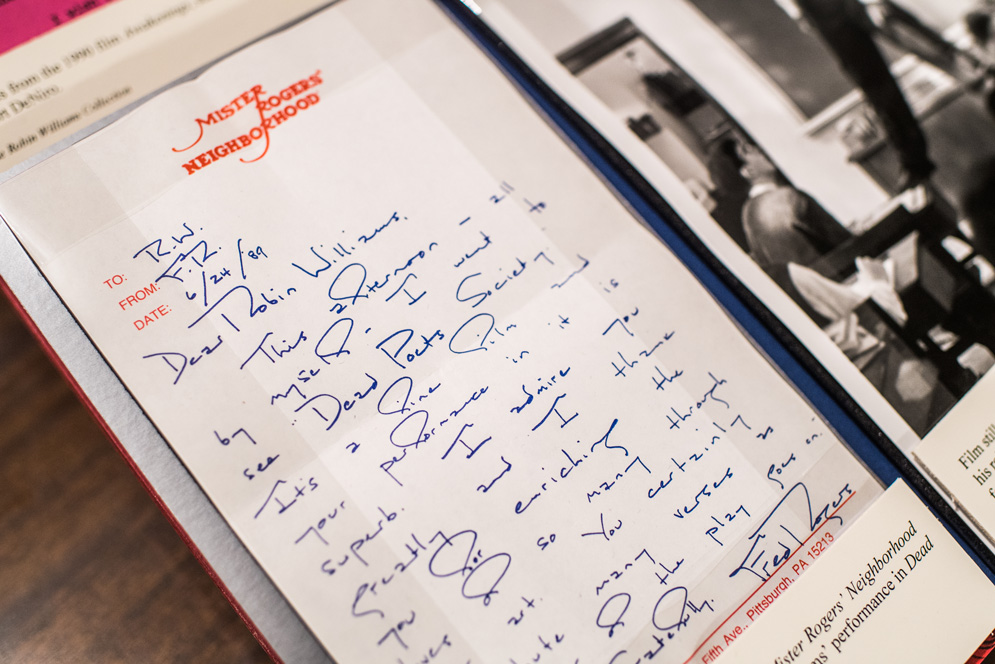 s from the 1990 film Awakenings
rt DeNiro.
Robin Williams Collection
MISTER ROGERS'
NEIGHBORHOOD
TO: R.W.
FROM: F.R.
DATE: 6/24/89
Dear Robin Williams,
This afternoon – all
by myself – I went to
see "Dead Poets Society."
It's a fine film and
your performance in it is
superb. I admire you
greatly and I thank
you for enriching the
ives of so many through
art. You certainly
bute many verses as
of the play goes on.
atefully,
Fred Rogers
Fifth Ave., Pittsburgh, PA 15213
Film still
his
f
ister Rogers' Neighborhood
ms' performance in Dead